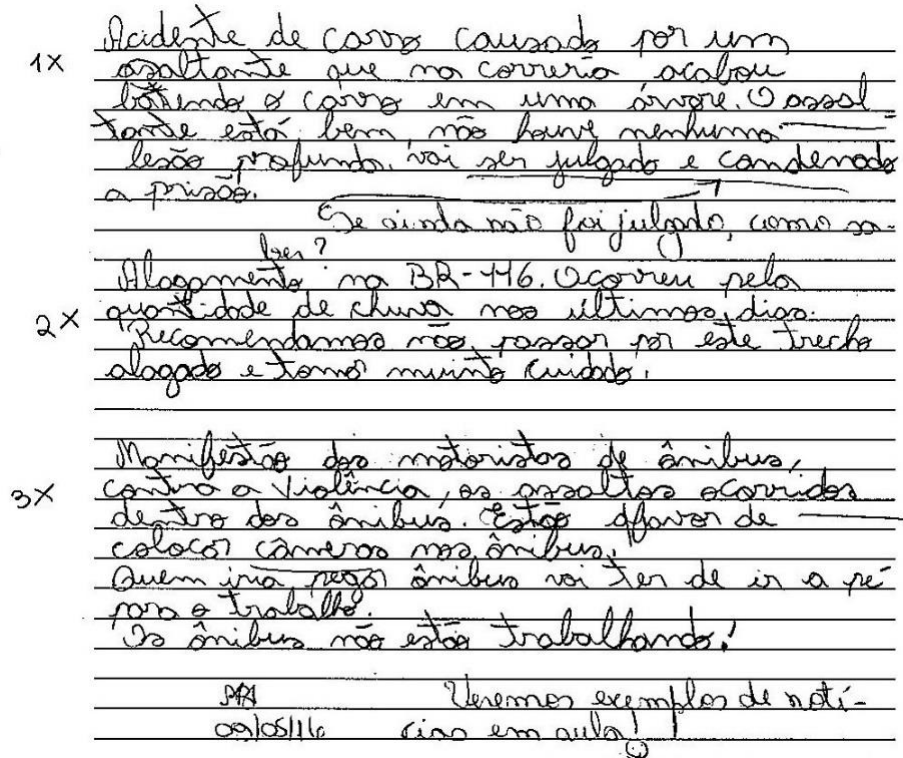 1X Acidente de carro causado por um
asaltante que na correria acabou
batendo o carro em uma árvore. O assal
tante está bem, não houve nenhuma
lesão profunda. vai ser julgado e condenado
a prisão.
Se ainda não foi julgado, como sa-
ber?
Alagamento na BR-116. Ocorreu pela
2X quantidade de chuva nos últimos dias.
Recomendamos não passar por este trecho
alagado e tomar muinto cuidado.
Manifestão dos motoristas de ônibus,
3X contra a violência, os assaltos ocorridos
dentro dos ônibus. Estão affavor de
colocar câmeras nos ônibus.
Quem iria pegar ônibus vai ter de ir a pé
para o trabalho.
Os ônibus não estão trabalhando!
Veremos exemplos de notí-
09/05/16 cias em aula!